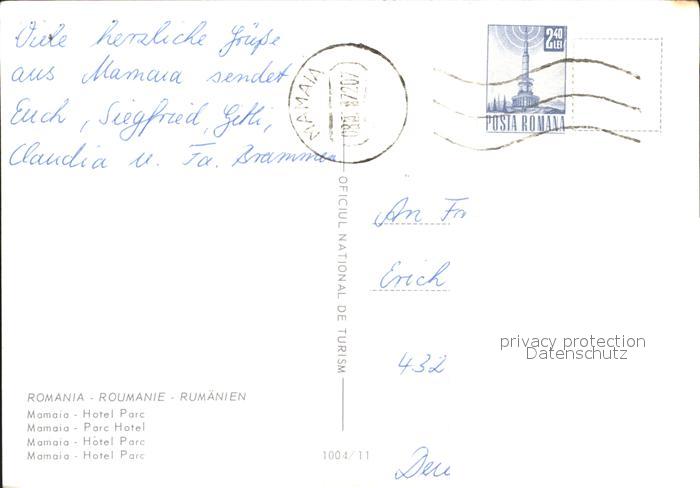 Viele herzliche Grüße
aus Mamaia sendet
Euch, Siegfried, Gitti,
Claudia u. Fa. Brammer
MAMAIA
2,40
LEI
POSTA ROMANA
OFICIUL NATIONAL DE TURISM
An
Erich
432
privacy protection
Datenschutz
ROMANIA - ROUMANIE - RUMÄNIEN
Mamaia - Hotel Parc
Mamaia - Parc Hotel
Mamaia - Hotel Parc
Mamaia - Hotel Parc
1004/11